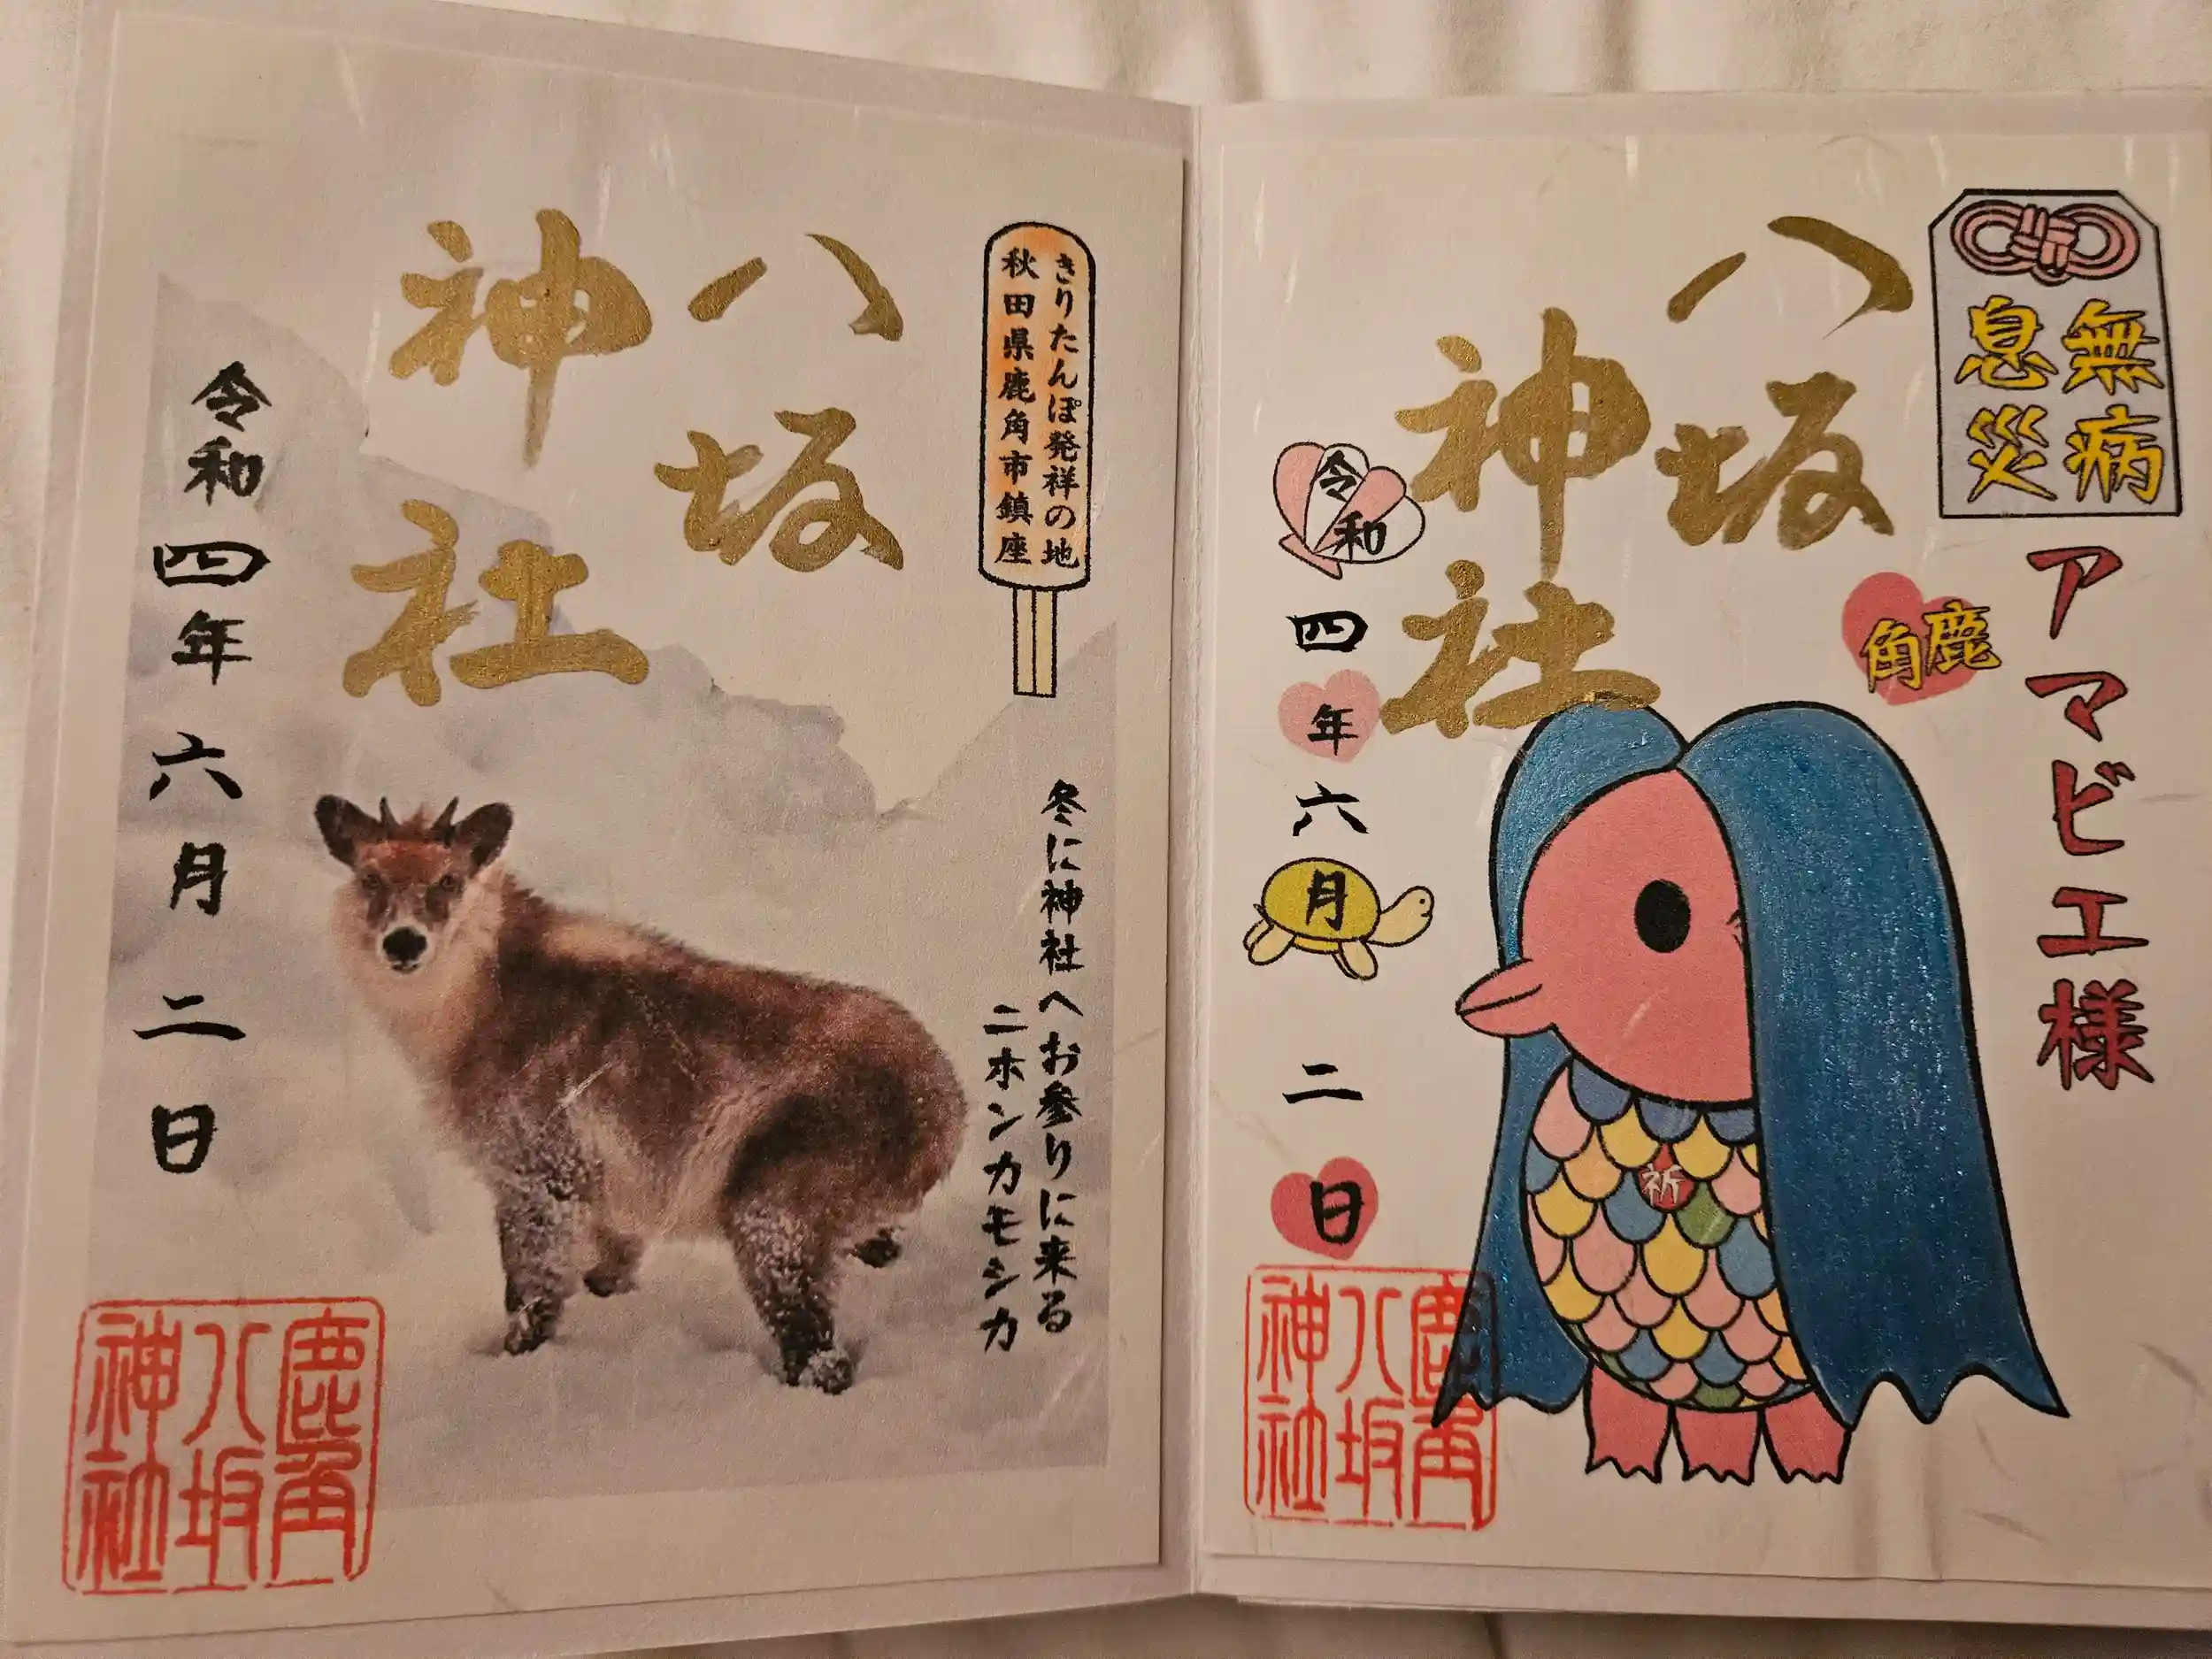 きりたんぽ発祥の地
秋田県鹿角市鎮座
八坂
神社
冬に神社へお参りに来る
ニホンカモシカ
令和四年六月二日
鹿角
八坂
神社
無病
息災
アマビエ様
鹿角
八坂
神社
令和四年六月二日
祈
鹿角
八坂
神社